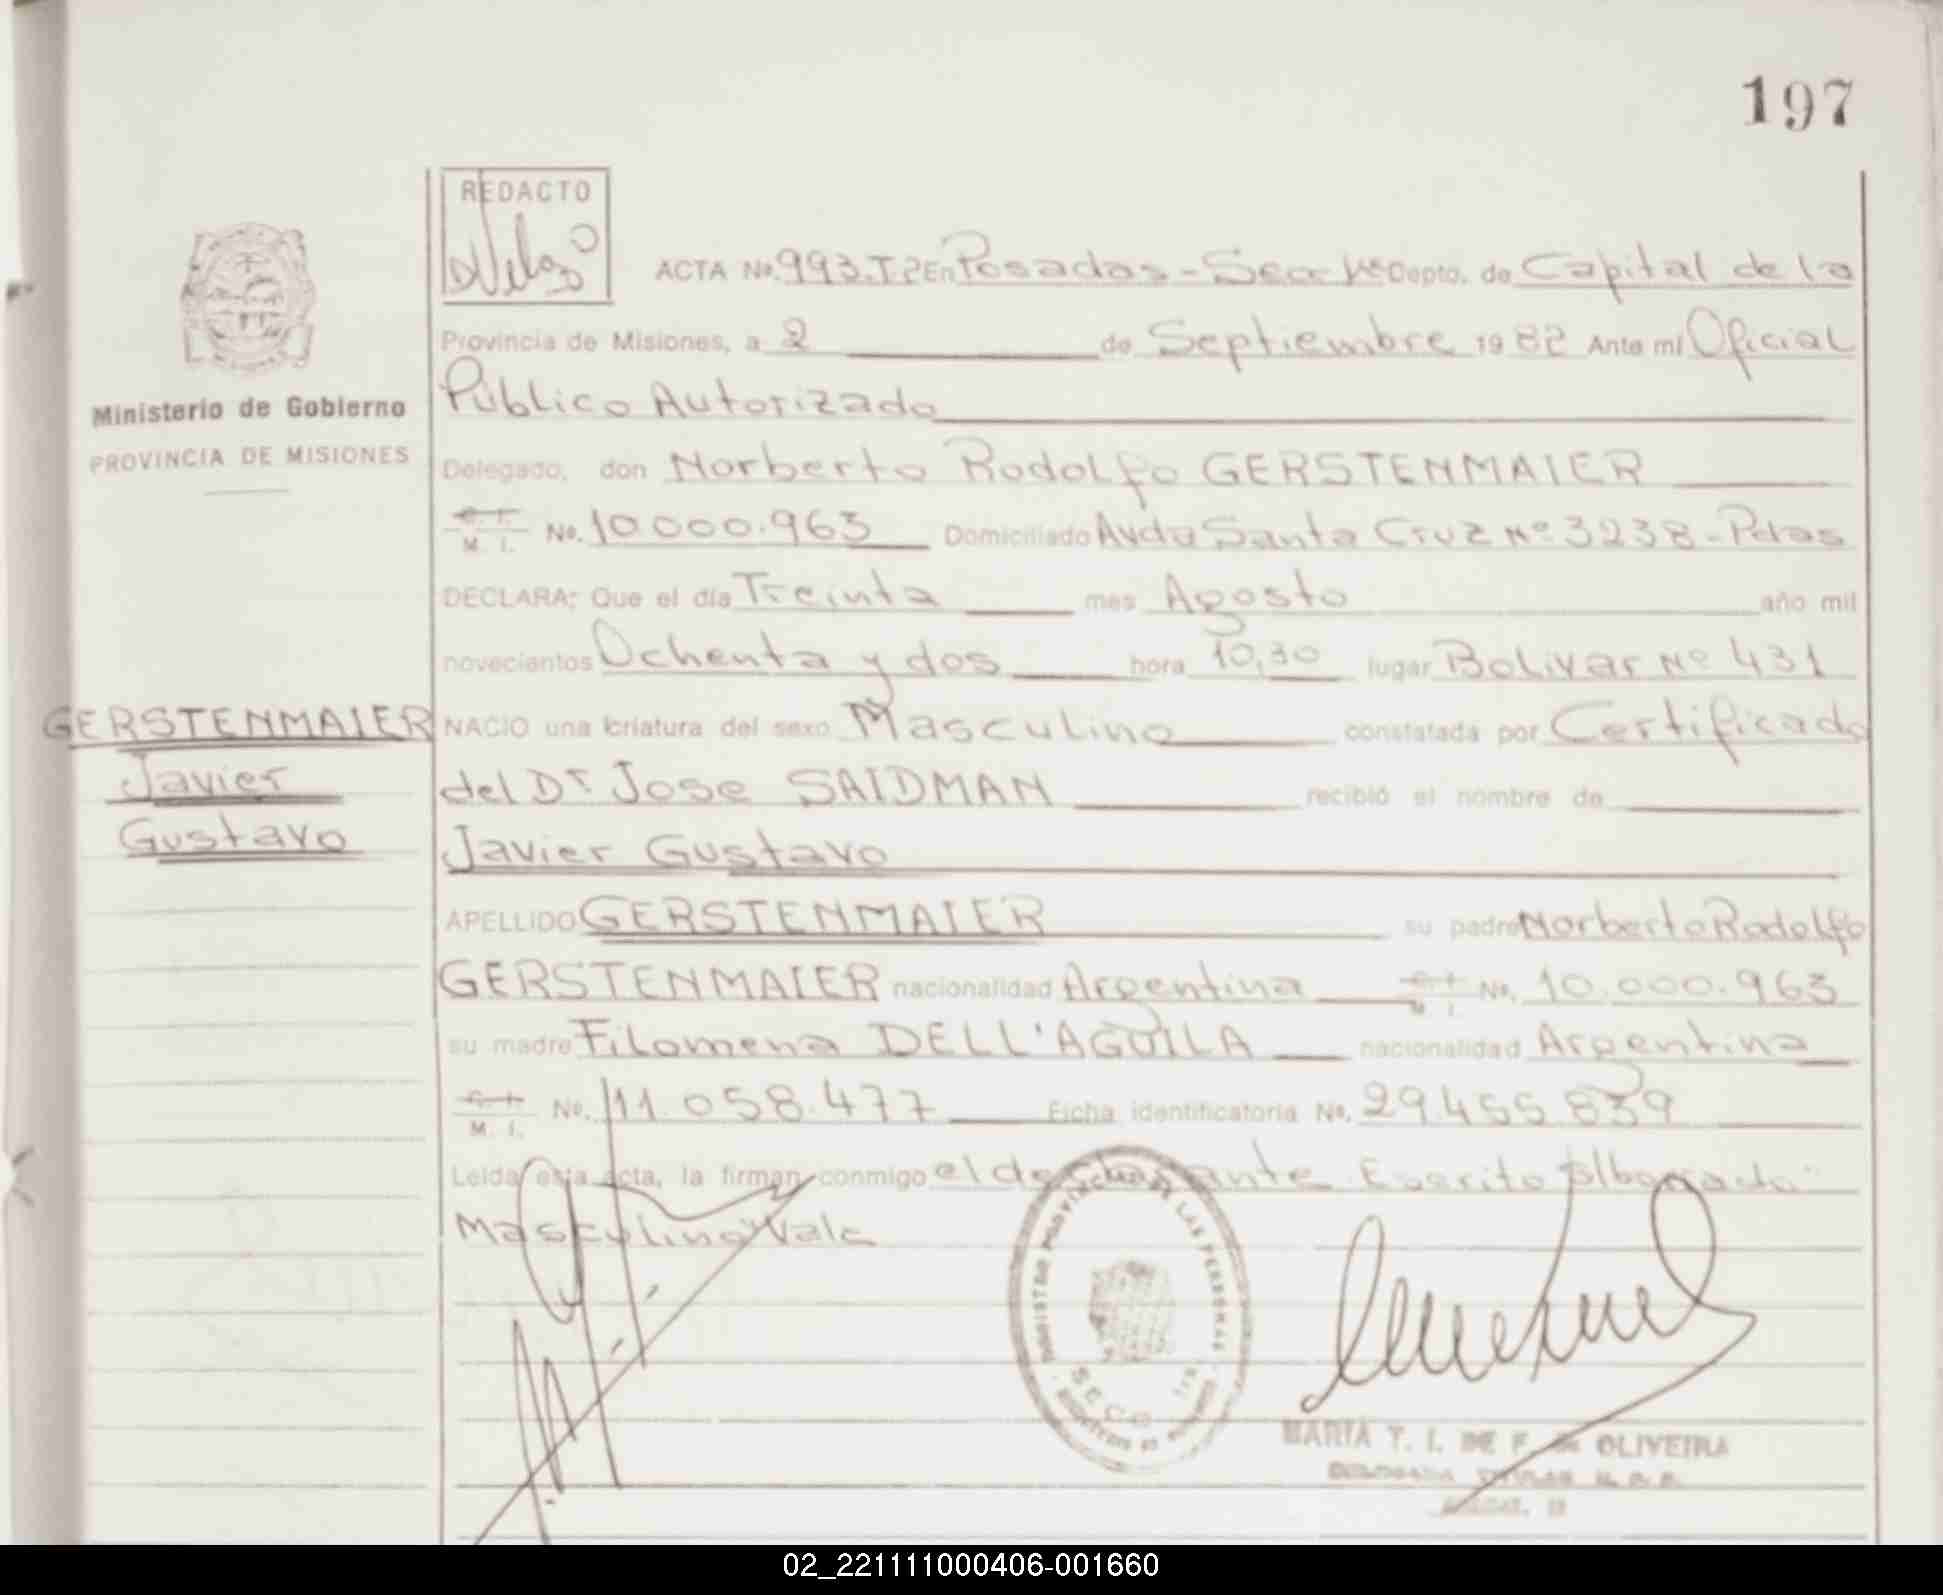 197
REDACTO
ACTA No. 993.T2 En Posadas - Secc 1ra Depto. de Capital de la
Provincia de Misiones, a 2 de Septiembre 1982 Ante mi Oficial
Ministerio de Gobierno
PROVINCIA DE MISIONES
Público Autorizado
Delegado, don Norberto Rodolfo GERSTENMAIER
C. I.
M. I. No. 10.000.963 Domiciliado Avda Santa Cruz Nº 3238 - Pdas
DECLARA: Que el día Treinta mes Agosto año mil
novecientos Ochenta y dos hora 10,30 lugar Bolivar Nº 431
GERSTENMAIER
Javier
Gustavo
NACIO una criatura del sexo Masculino constatada por Certificado
del Dr Jose SAIDMAN recibió el nombre de
Javier Gustavo
APELLIDO GERSTENMAIER su padre Norberto Rodolfo
GERSTENMAIER nacionalidad Argentina C. I. M. I. No. 10.000.963
su madre Filomena DELL'AGUILA nacionalidad Argentina
C. I.
M. I. No. 11.058.477 Ficha identificatoria No. 29.455.839
Leída esta acta, la firman conmigo el declarante. Escrito s/borrado "
Masculino" Vale
REGISTRO PROVINCIAL DE LAS PERSONAS
MARIA T. I. DE F. DE OLIVEIRA
DELEGADA TITULAR
02_221111000406-001660